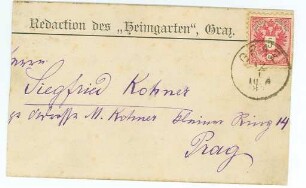 Redaction des „Heimgarten", Graz.
Herrn
Siegfried Kohner
pr adresse M. Kohner kleiner Ring 14
Prag
5
GRAZ